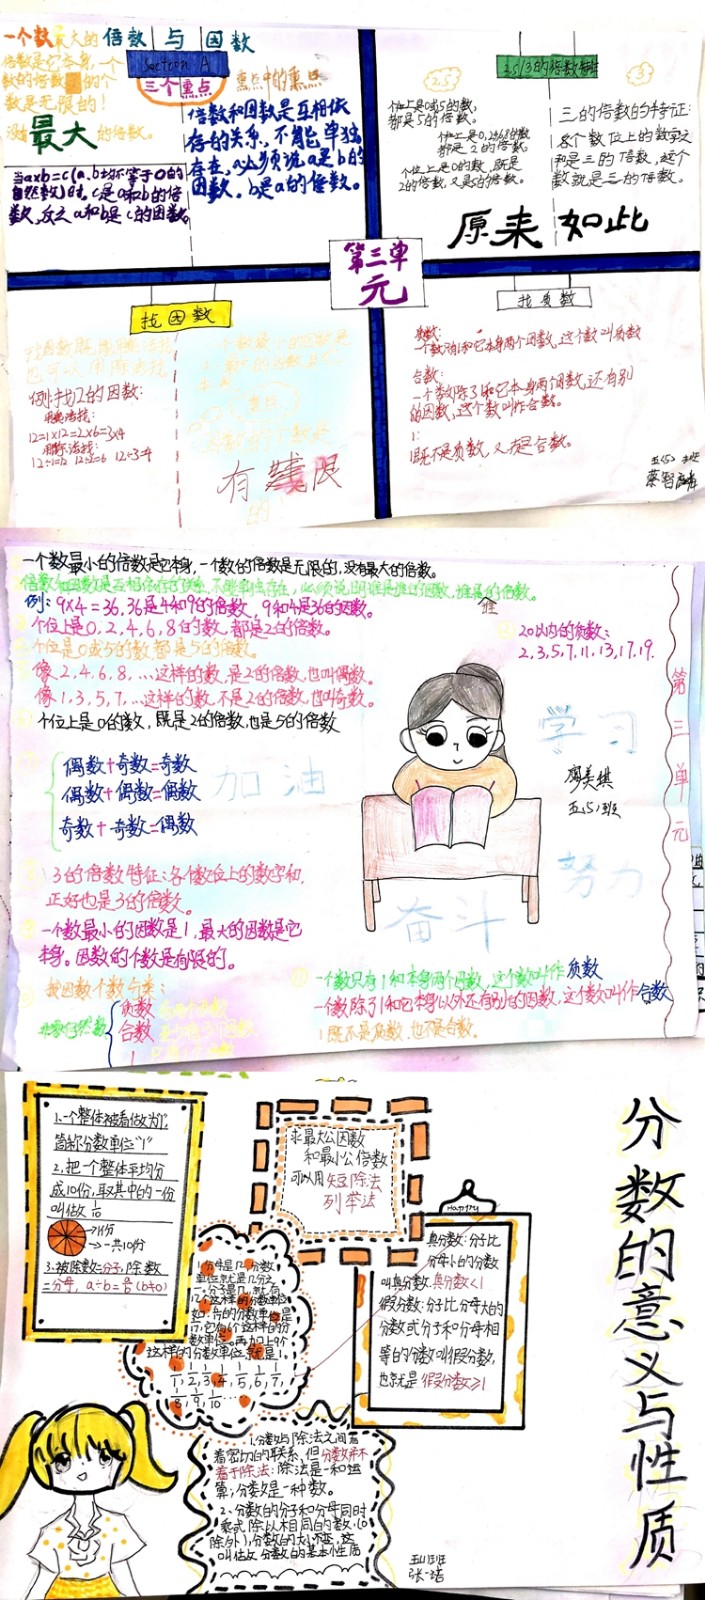 一个数最大的倍数与因数
倍数是它本身,一个
数的倍数的个
数是无限的!
没有最大的倍数。
Section A
三个重点
重点中的重点
当axb=c(a、b均不等于0的
自然数)时,c是a和b的倍
数,反之a和b是c的因数。
倍数和因数是互相依
存的关系,不能单独
存在,必须说a是b的
因数,b是a的倍数。
2.5/3的倍数特征
2.5
3
个位上是0或5的数,
都是5的倍数。
个位上是0,2,4,6,8的数
都是2的倍数。
个位上是0的数,既是
2的倍数,又是5的倍数。
三的倍数的特征:
各个数位上的数字
和是三的倍数,这个
数就是三的倍数。
原来如此
第三单
元
找因数
例:找12的因数:
用乘法找:
12=1×12=2×6=3×4
用除法找:
12÷1=12 12÷2=6 12÷3=4
因数的个数是
有限
的
找质数
质数:
一个数只有1和它本身两个因数,这个数叫质数
合数:
一个数除了1和它本身两个因数,还有别
的因数,这个数叫作合数。
1:
1既不是质数,又不是合数。
五(5)班
一个数最小的倍数是它本身,一个数的倍数是无限的,没有最大的倍数。
倍数和因数是互相依存的关系,不能单独存在,必须说明谁是谁的倍数,谁是谁的倍数。
例:9×4=36,36是4和9的倍数,9和4是36的因数。
个位上是0,2,4,6,8的数,都是2的倍数。
个位是0或5的数都是5的倍数。
像2,4,6,8,...这样的数,是2的倍数,也叫偶数。
像1,3,5,7,...这样的数,不是2的倍数,也叫奇数。
个位上是0的数,既是2的倍数,也是5的倍数
偶数+奇数=奇数
偶数+偶数=偶数
奇数+奇数=偶数
加油
20以内的质数:
2,3,5,7,11,13,17,19.
第三单元
学习
廖美琪
五(5)班
努力
奋斗
3的倍数特征:各个数位上的数字和,
正好也是3的倍数。
一个数最小的因数是1,最大的因数是它
本身。因数的个数是有限的。
按因数个数分类:
非零自然数
质数
合数
1
一个数只有1和本身两个因数,这个数叫作质数
一个数除了1和它本身以外还有别的因数,这个数叫作合数
1既不是质数,也不是合数。
分数的意义与性质
1.一个整体被看做为"1",
简称分数单位"1"
2.把一个整体平均分
成10份,取其中的一份
叫做1/10
→1份
→一共10份
3.被除数=分子,除数
=分母,a÷b=a/b(b≠0)
求最大公因数
和最小公倍数
可以用短除法
列举法
Happy
真分数:分子比
分母小的分数
叫真分数.真分数<1
假分数:分子比分母大的
分数或分子和分母相
等的分数叫假分数,
也就是假分数≥1
1分母是几,分数
单位就是几分之
一,分子是几,就有
几个这样的分数单位
这样的分数单位就是1.
1/1,1/2,1/3,1/4,1/5,1/6,1/7,
1/8,1/9,1/10......
1.分数与除法之间有
着密切的联系,但分数并不
等于除法:除法是一种运
算;分数是一种数。
2、分数的分子和分母同时
乘或除以相同的数,(0
除外),分数的大小不变,这
叫做分数的基本性质